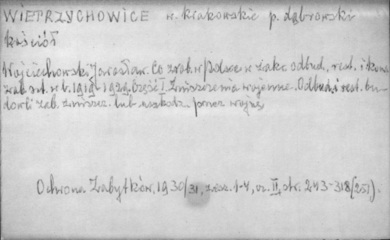 WIETRZYCHOWICE w. krakowskie p. dąbrowski
kościół
Wojciechowski Jarosław. Co zrob. w Polsce w zakr. odbud., rest. i konserw.
zab. szt. w l. 1919-1929. Część I. Zniszczenia wojenne. Odbud. i rest. bu-
dowli zab. zniszcz. lub uszkodz. przez wojnę,
Ochrona Zabytków, 1930/31, zesz. 1-4, cz. II, str. 243-318 (251).